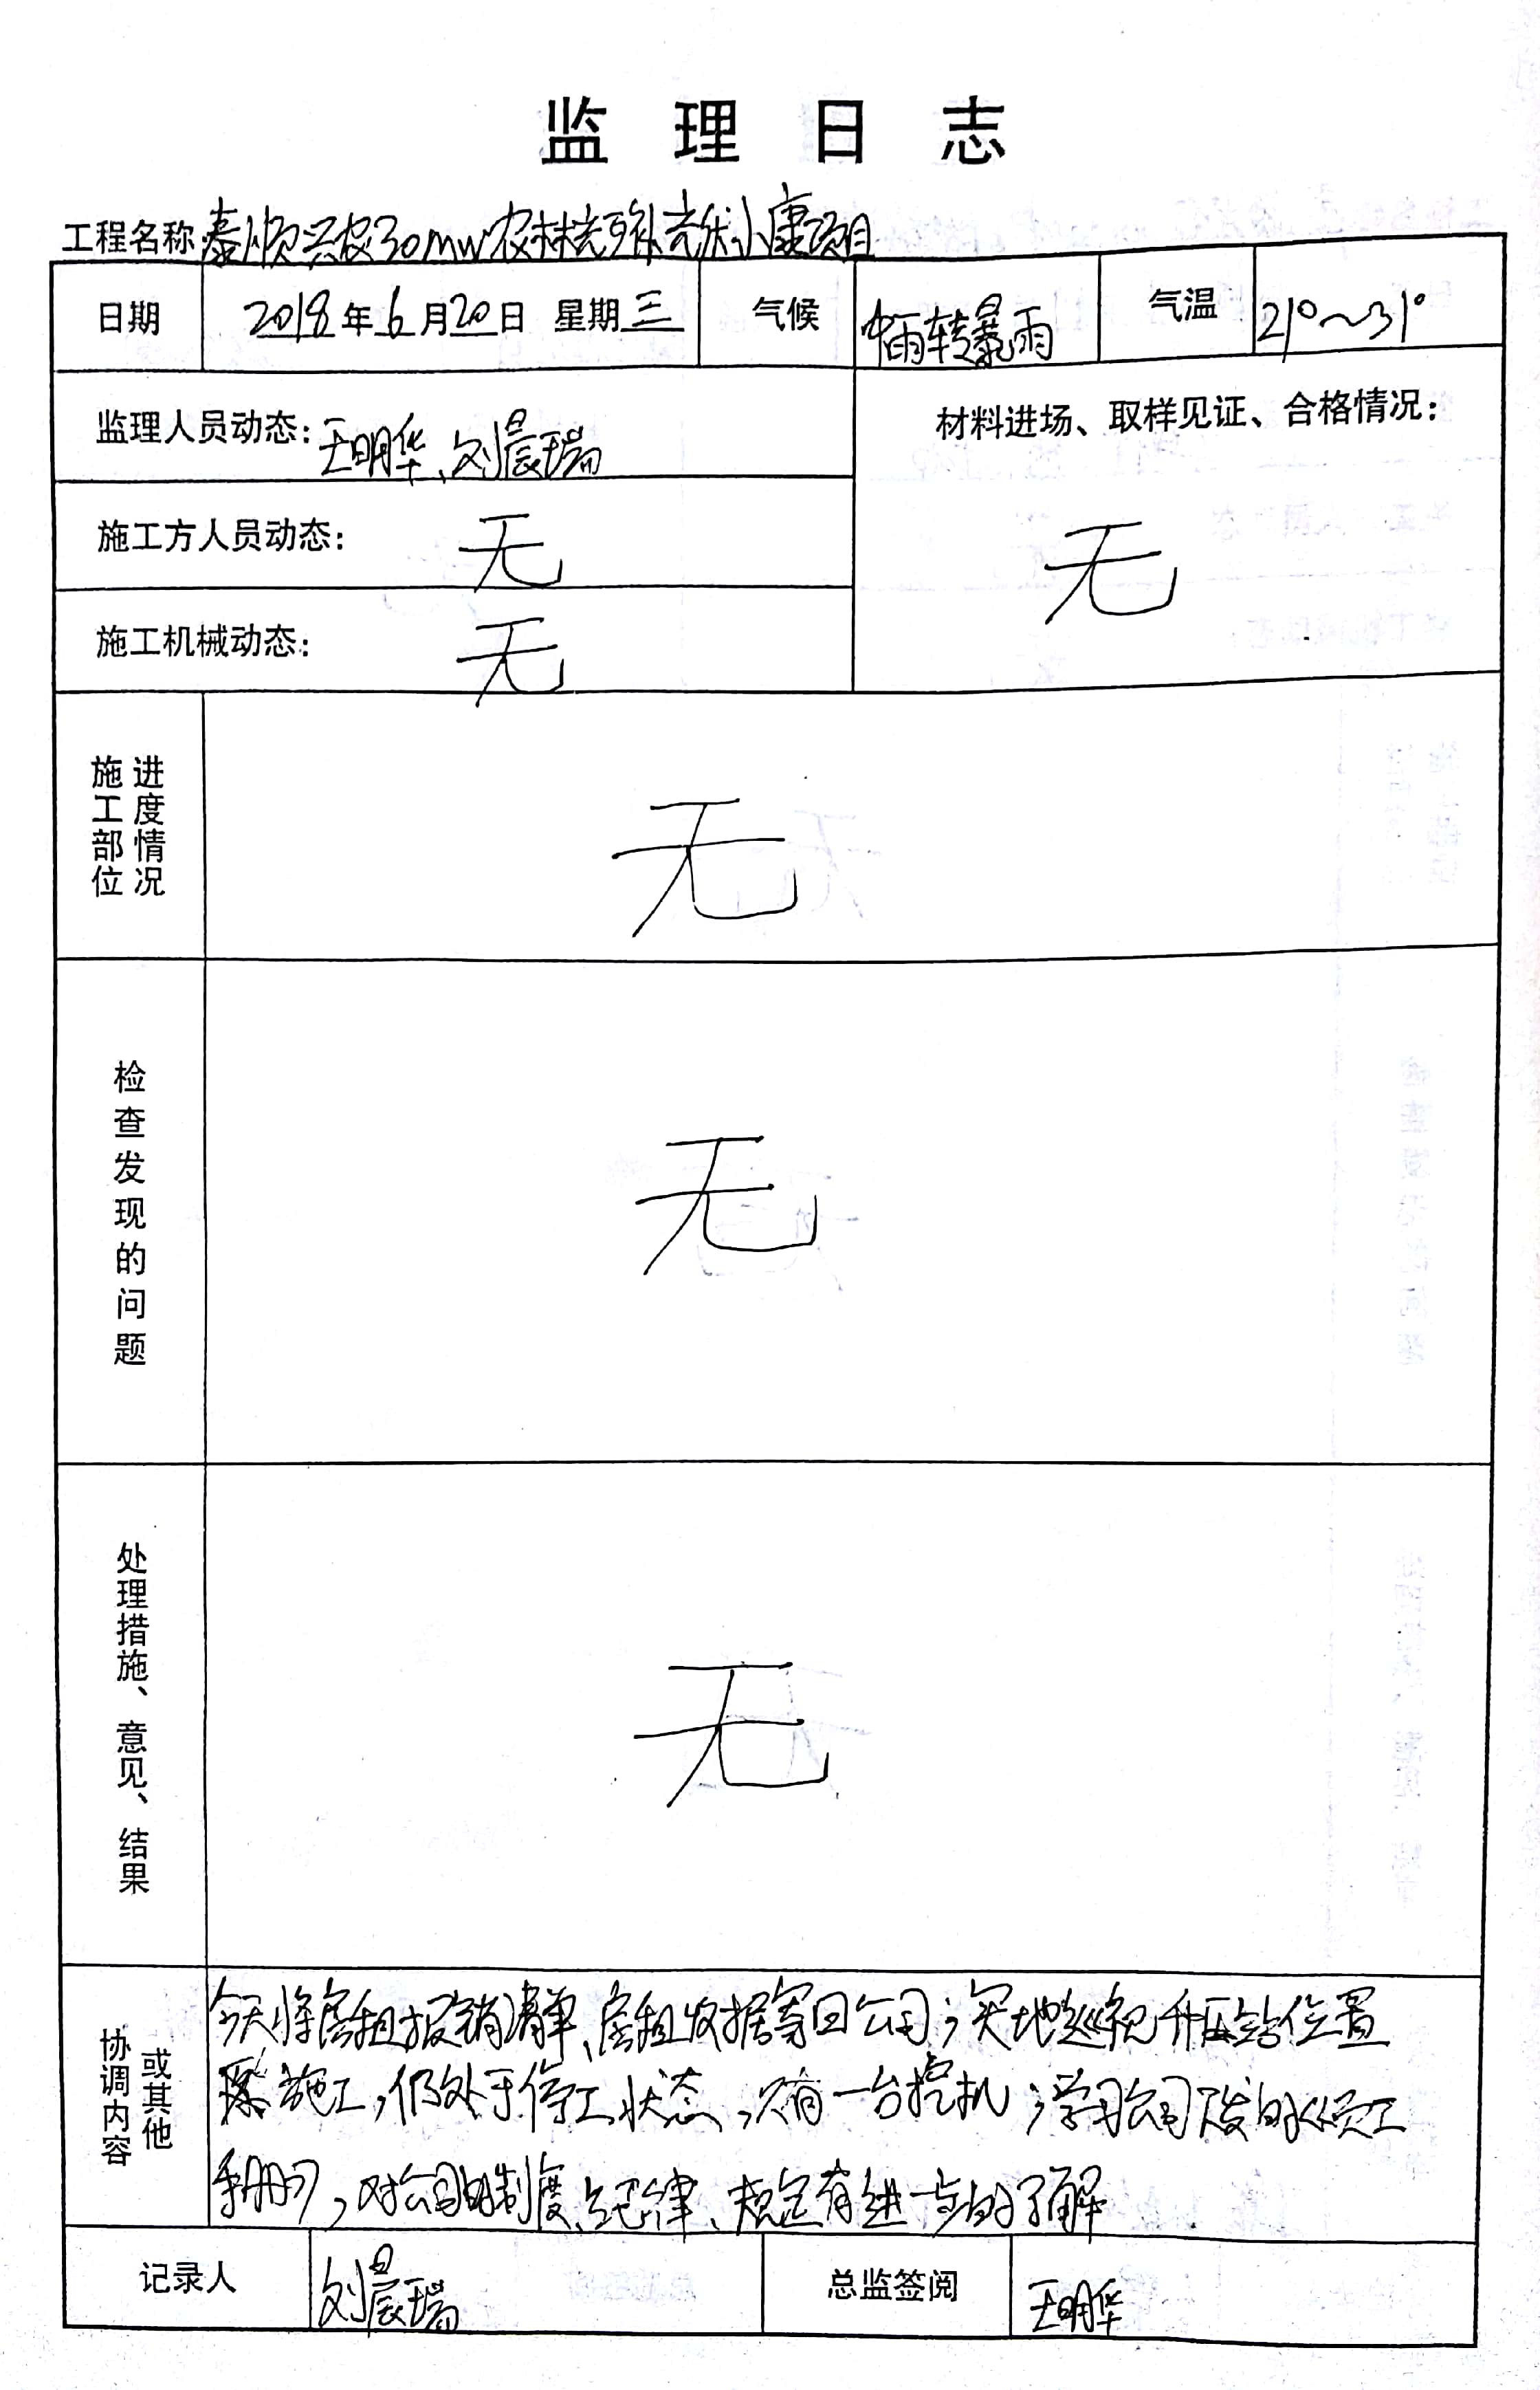 监理日志
工程名称 泰顺兴农30mw农林光互补光伏小康项目
日期 2018年6月20日 星期三 气候 中雨转暴雨 气温 21°~31°
监理人员动态：王明华、刘晨瑞
材料进场、取样见证、合格情况：
无
施工方人员动态：无
施工机械动态：无
施工部位
进度情况
无
检查发现的问题
无
处理措施、意见、结果
无
协调内容
或其他
今天将房租报销清单、房租收据寄回公司；实地巡视升压站位置
施工，仍处于停工状态，只有一台挖机；学习公司下发的《员工
手册》，对公司的制度、纪律、规定有进一步的了解
记录人 刘晨瑞 总监签阅 王明华